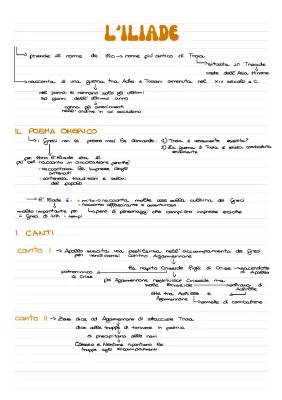 L'ILIADE
prende il nome da Ilio → nome più antico di Troia
situata in Troade
coste dell'Asia Minore
racconta di una guerra tra Achei e Troiani avvenuta nel XII secolo a.C.
nel poema si narrano solo gli ultimi
50 giorni dell'ultimo anno
narra gli avvenimenti
nell'ordine in cui accadono
IL POEMA OMERICO
i Greci non si posero mai la domanda: 1) Troia è veramente esistita?
2) La guerra di Troia è stata combattuta
realmente
per loro l'Iliade era la
più bel racconto in circolazione perché:
raccontava le imprese degli
antenati
conteneva tradizioni e valori
del popolo
L'Iliade è: mito → racconta molte cose della cultura dei Greci
racconto affascinante e avventuroso
modello importante per
i Greci di tutti i tempi
pieno di personaggi che compiono imprese eroiche
I CANTI
CANTO I → Apollo suscita una pestilenza nell'accampamento dei Greci
per vendicarsi contro Agamennone
ha rapito Criseide figlia di Crise → sacerdote
di Apollo
di Crise
poi Agamennone restituisce Criseide ma
vuole Briseide → schiava di
Achille
lite tra Achille e
Agamennone
smette di combattere
CANTO II → Zeus dice ad Agamennone di attaccare Troia
dice alle truppe di tornare in patria
si precipitano alle navi
Odisseo e Nestore riportano le
truppe negli accampamenti